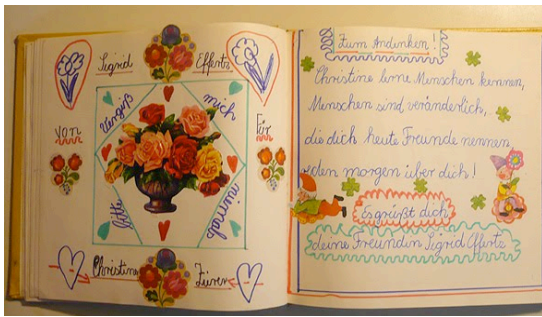 Sigrid Effertz
Vergiß mich
von Für
bitte niemals
Christine
Zum Andenken!
Christine lerne Menschen kennen,
Menschen sind veränderlich,
die dich heute Freunde nennen,
reden morgen über dich!
Es grüßt dich
deine Freundin Sigrid Effertz